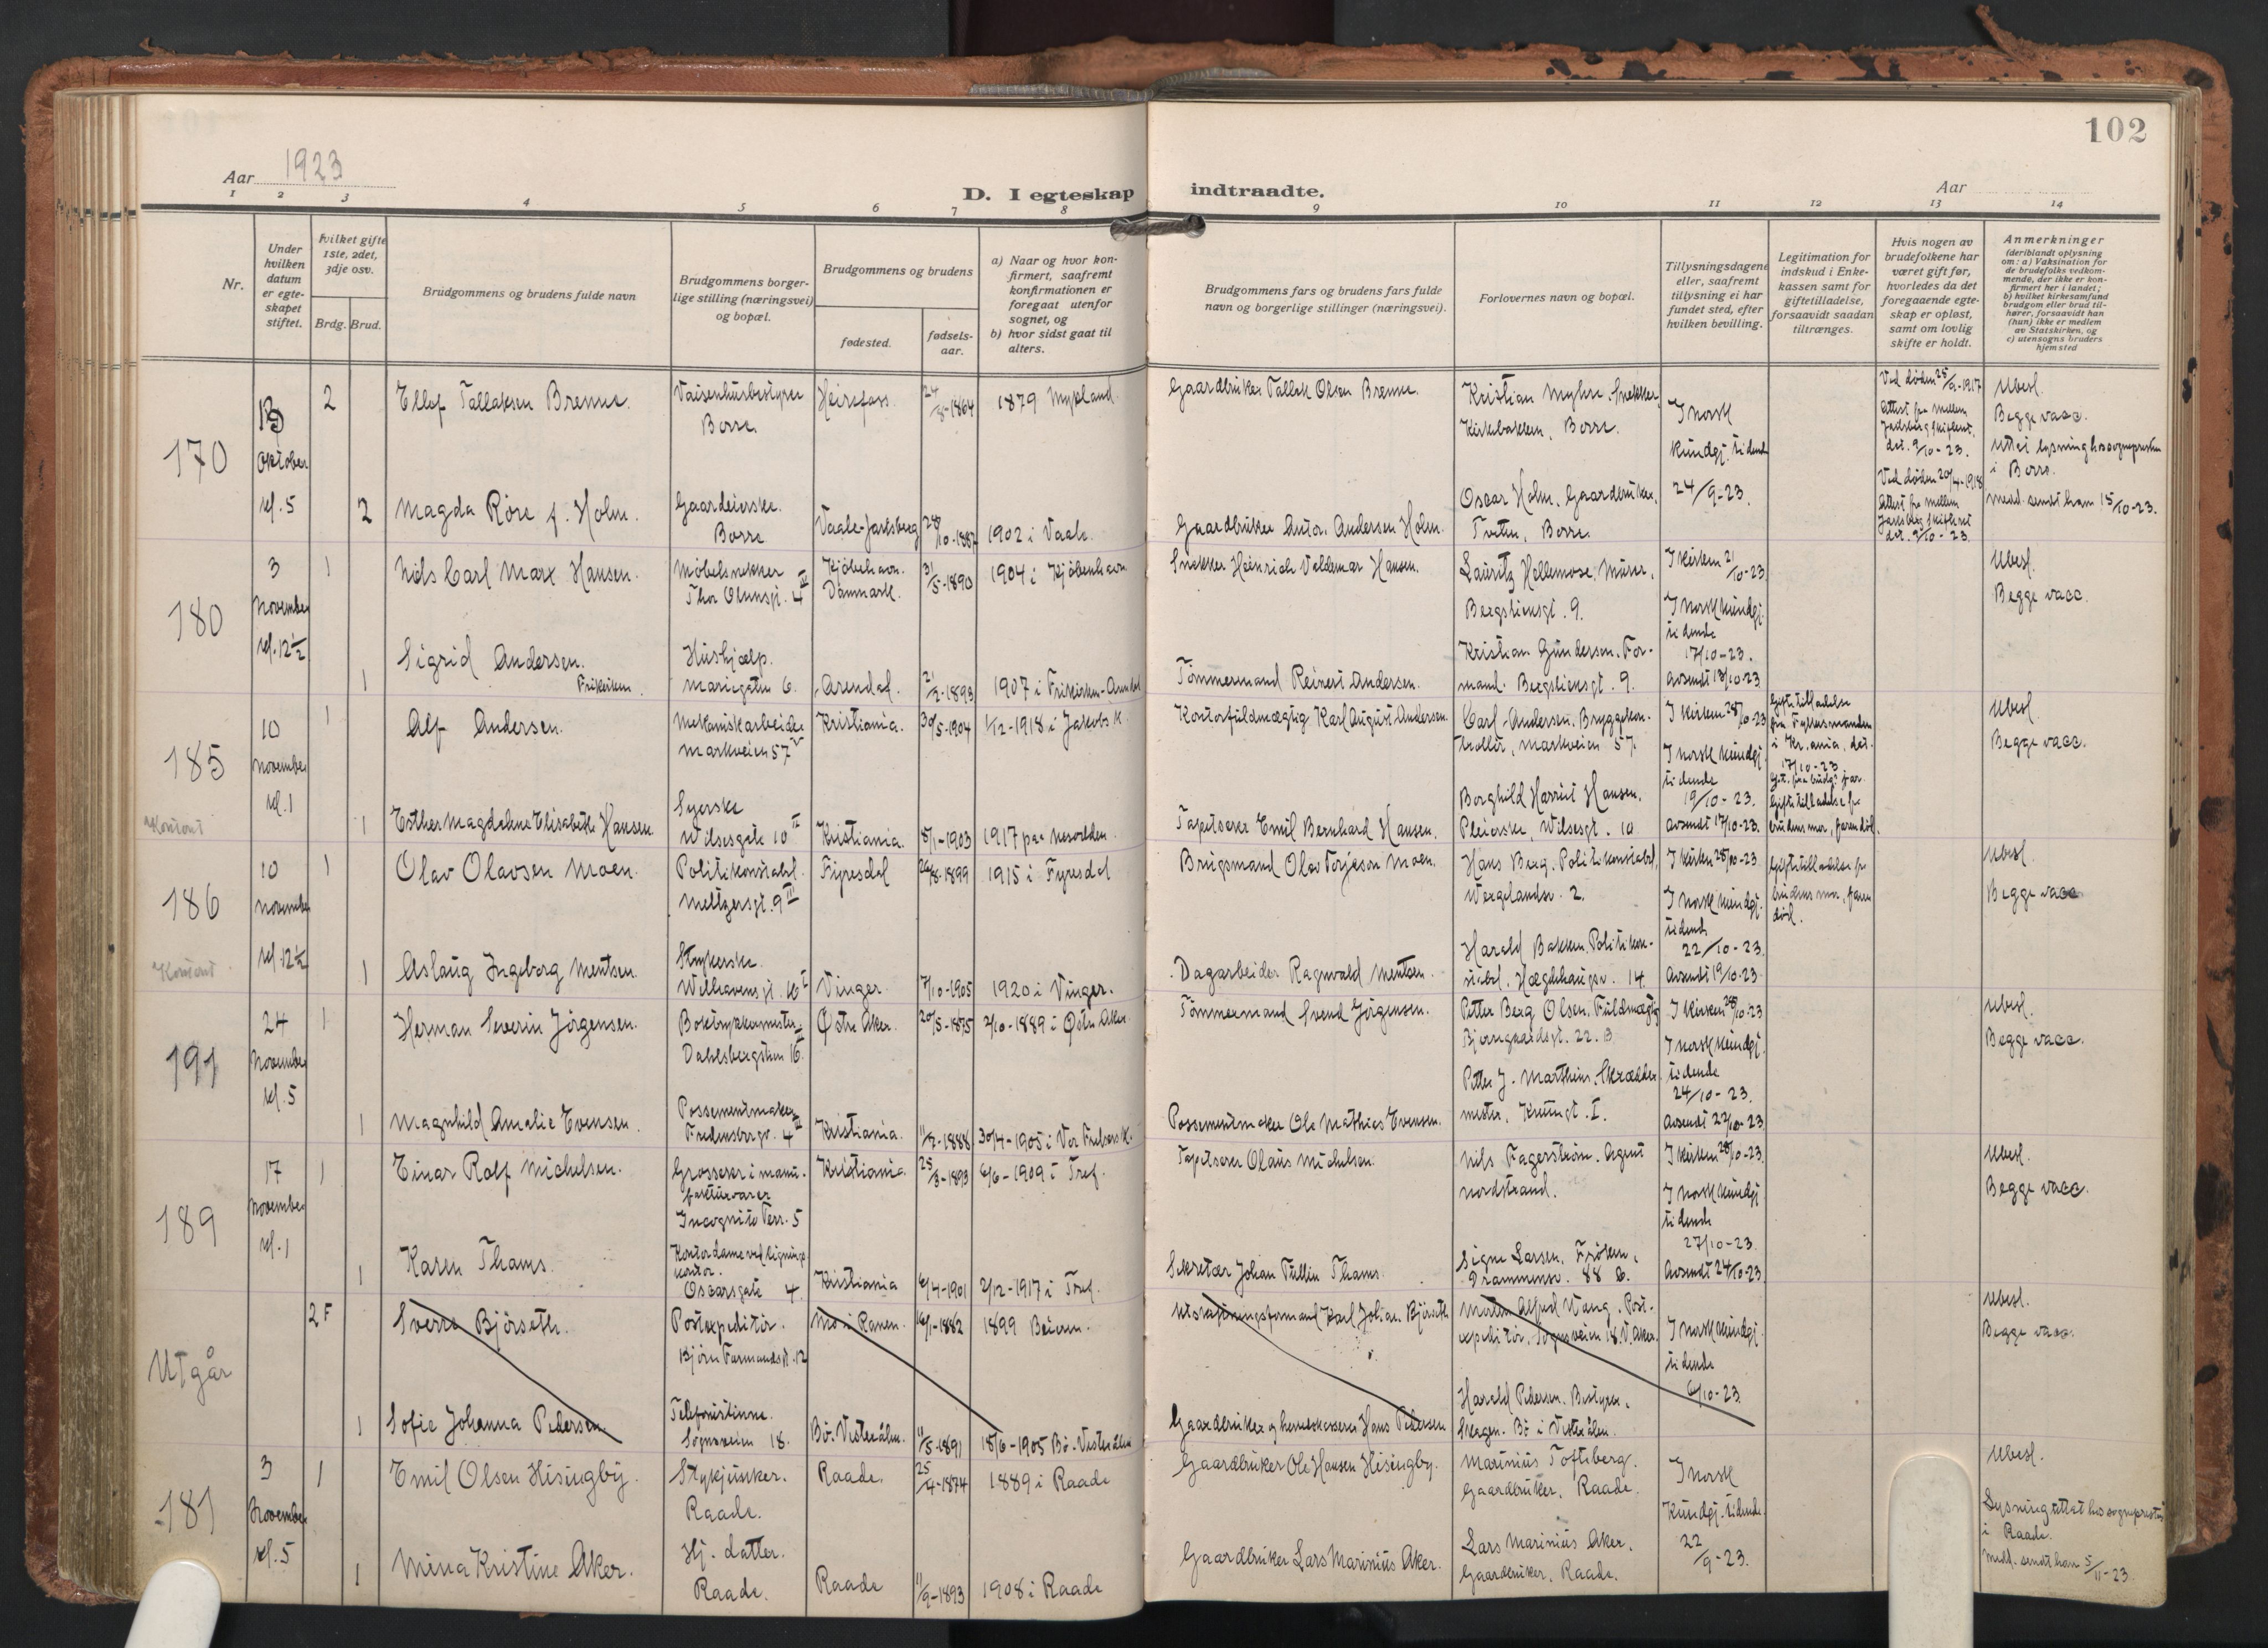 102
Aar 1923
D. I egteskap indtraadte.
Aar
1 2 3 4 5 6 7 8 9 10 11 12 13 14
Nr.
Under hvilken datum er egteskapet stiftet.
hvilket gifte 1ste, 2det, 3dje osv.
Brdg. Brud.
Brudgommens og brudens fulde navn
Brudgommens borgerlige stilling (næringsvei) og bopæl.
Brudgommens og brudens
fødested.
fødselsaar.
a) Naar og hvor konfirmert, saafremt konfirmationen er foregaat utenfor sognet, og
b) hvor sidst gaat til alters.
Brudgommens fars og brudens fars fulde navn og borgerlige stillinger (næringsvei).
Forlovernes navn og bopæl.
Tillysningsdagene eller, saafremt tillysning ei har fundet sted, efter hvilken bevilling.
Legitimation for indskud i Enkekassen samt for giftetilladelse, forsaavidt saadan tiltrænges.
Hvis nogen av brudefolkene har været gift før, hvorledes da det foregaaende egteskap er opløst, samt om lovlig skifte er holdt.
Anmerkninger (deriblandt oplysning om: a) Vaksination for de brudefolks vedkommende, der ikke er konfirmert her i landet; b) hvilket kirkesamfund brudgom eller brud tilhører, forsaavidt han (hun) ikke er medlem av Statskirken, og c) utensogns bruders hjemsted
170
Oktober
kl. 5
2
Ellef Tallaksen Brenne.
Vaisenhusbestyrer
Borre
Heirefoss
24/8-1864
1879 Mykland
Gaardbruker Tallak Olsen Brenne.
Kristian Myhre, Snekker,
Kirkebakken, Borre.
I norsk
kundgj. tidende
24/9-23.
Ved døden 25/9-1917
Attest fra mellem
Jarlsberg Skifteret,
dat. 9/10-23.
Ubesl.
Begge vacc.
i Borre.
medd. sendt ham 15/10-23.
2
Magda Röre f. Holm.
Gaardeierske.
Borre
Vaale-Jarlsberg
1902 i Vaale.
Gaardbruker Anton Andersen Holm.
Oscar Holm, Gaardbruker,
Tveten, Borre.
Ved døden 20/4-1918
Attest fra mellem
Jarlsberg Skifteret
dat. 9/10-23.
180
3
November
kl. 12½
1
Nils Carl Marx Hansen.
Møbelsnekker
Thor Olsensgt. 4
Kjöbehavn.
Danmark.
31/5-1890
1904 i Kjöbenhavn
Snekker Heinrich Valdemar Hansen.
Lauritz Hellemose, Murer,
Bergsliensgt. 9.
I kirken 21/10-23
I norsk kundgj.
tidende
17/10-23.
Avsendt 13/10-23
Ubesl.
Begge vacc.
1
Sigrid Andersen.
Frikirken.
Hushjælp.
Mariegaten 6.
Arendal.
21/2-1893
1907 i Frikirken-Arendal
Tömmermand Reinert Andersen.
Kristian Gundersen, For-
mand. Bergsliensgt. 9.
185
Kontant
10
November
kl. 1
1
Alf Andersen.
Mekanisk arbeider
Markveien 57
Kristiania.
30/5-1904
1/12-1918 i Jakobs K.
Kontorfuldmægtig Karl August Andersen.
Carl Andersen, Bryggekon-
trollör, Markveien 57.
I kirken 28/10-23
I norsk kundgj.
tidende
19/10-23.
Avsendt 17/10-23.
Giftetilladelse
fra Fylkesmanden
i Kr.ania, dat.
17/10-23.
Giftetilladelse fra
brudens mor, faren död.
Ubesl.
Begge vacc.
1
Esther Magdalene Elisabeth Hansen.
Syerske
Wilsesgate 10
Kristiania.
8/1-1903
1917 paa Nesodden.
Tapetserer Emil Bernhard Hansen.
Borghild Harriet Hansen,
Pleierske, Wilsesgt. 10
186
Kontant
10
November
kl. 12½
1
Olav Olavsen Moen.
Politikonstabel.
Meltzersgt. 9
Fyresdal
26/8-1899
1915 i Fyresdal
Brugsmand Olav Torjeson Moen.
Hans Berg, Politikonstabel,
Wergelandsv. 2.
I kirken 28/10-23
I norsk kundgj.
tidende
22/10-23.
Avsendt 19/10-23
Giftetilladelse fra
brudens mor, faren
död.
Ubesl.
Begge vacc
1
Aslaug Ingeborg Mentsen.
Strykerske.
Welhavensgt. 16
Vinger.
7/10-1905
1920 i Vinger.
Dagarbeider Ragnvald Mentsen.
Harald Bakken, Politikon-
stabel, Hægdehaugsv. 14.
191
24
November
kl. 5
1
Herman Severin Jörgensen.
Boktrykkermester
Dahlsbergstien 16
Østre Aker.
20/5-1875
2/10-1889 i Østre Aker.
Tömmermand Svend Jörgensen.
Petter Berg Olsen, Fuldmægtig
Bjerregaardsgt. 22. B
Petter J. Marthins, Skrædder
mester, Kruusgt. I.
I kirken 28/10-23
I norsk kundgj.
tidende
24/10-23.
Avsendt 22/10-23
Ubesl.
Begge vacc.
1
Magnhild Amalie Evensen.
Possementmaker
Fredensborgv. 4
Kristiania.
11/2-1888
30/4-1905 i Vor Frelsers K.
Possementmaker Ole Mathias Evensen.
189
17
November
kl. 1
1
Einar Rolf Michelsen.
Grosserer i manu-
fakturvarer
Incognito Terr. 5
Kristiania.
25/3-1893
6/6-1909 i Tref.
Tapetserer Olaus Michelsen.
Nils Fagerström. Agent
Nordstrand.
I kirken 28/10-23.
I norsk kundgj.
tidende
27/10-23.
Avsendt 24/10-23
Ubesl.
Begge vacc.
1
Karen Thams.
Kontordame ved lignings-
kontor.
Oscarsgate 4.
Kristiania
6/4-1901
2/12-1917 i Tref.
Sekretær Johan Tullin Thams.
Signe Larsen, Fröken,
Drammensv. 88 B.
Utgår
2 F
Sverre Bjørseth.
Postexpeditör.
Bjørn Farmandsgt. 12
Mo i Ranen.
16/1-1882
1899 Beieren.
Utskiftningsformand Karl Johan Bjørseth
Alfred Wang, Post-
expeditör, Sognsveien 18. V. Aker.
I norsk kundgj.
tidende
6/10-23.
Ubesl.
Begge vacc.
1
Sofie Johanna Pedersen.
Telefonistinne.
Sognsveien 18.
Bö. Vesterålen.
11/5-1891
18/6-1905 Bö. Vesterålen
Gaardbruker og herredskasserer Hans Pedersen
Harald Pedersen, Bestyrer,
Skagen. Bö i Vesterålen.
181
3
November
kl. 5
1
Emil Olsen Hisingby.
Stykjunker.
Raade.
Raade.
25/4-1874
1889 i Raade
Gaardbruker Ole Hansen Hisingby.
Marinius Tofteberg.
Gaardbruker, Raade.
I norsk
Kundgj. tidende
22/9-23.
Ubesl.
Lysning tatt ut hos sogneprесten
i Raade.
medd. sendt ham 5/11-23.
1
Mina Kristine Aker.
Hj. datter.
Raade.
Raade
11/9-1893
1908 i Raade
Gaardbruker Lars Marinius Aker.
Lars Marinius Aker.
Gaardbruker, Raade.